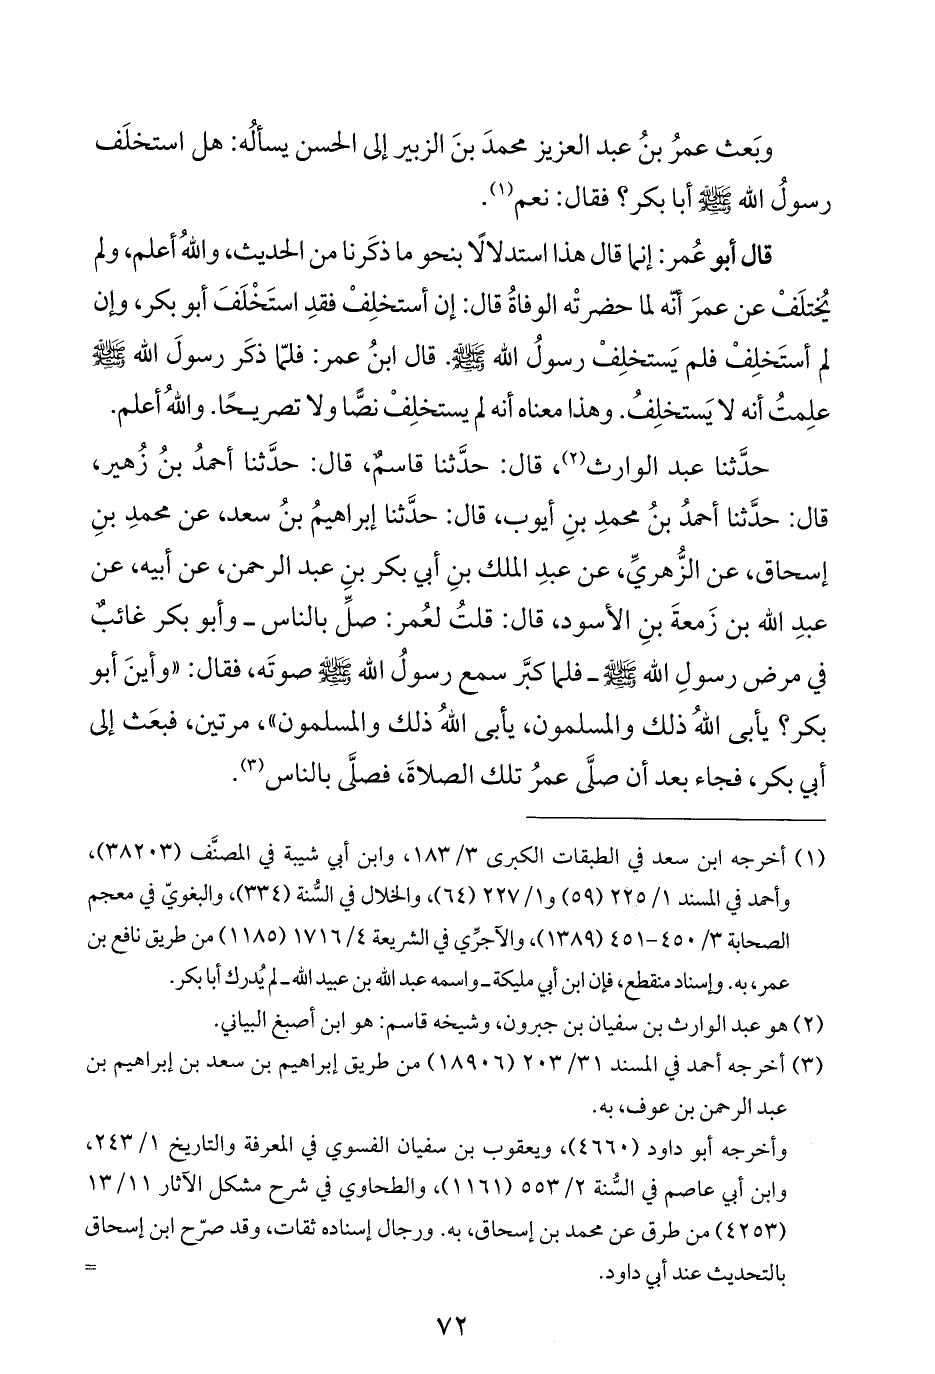 وبَعث عمرُ بنُ عبد العزيز محمدَ بنَ الزبير إلى الحسن يسألُه: هل استخلَف
رسولُ الله ﷺ أبا بكر؟ فقال: نعم(١).
قال أبو عُمر: إنما قال هذا استدلالًا بنحو ما ذكَرنا من الحديث، واللهُ أعلم، ولم
يُختلَفْ عن عمرَ أنّه لما حضرتْه الوفاةُ قال: إن أستخلِفْ فقدِ استَخْلَفَ أبو بكر، وإن
لم أستَخلِفْ فلم يَستخلِفْ رسولُ الله ﷺ. قال ابنُ عمر: فلمّا ذكَر رسولَ الله ﷺ
علِمتُ أنه لا يَستخلِفُ. وهذا معناه أنه لم يستخلِفْ نصًّا ولا تصريحًا. واللهُ أعلم.
حدَّثنا عبد الوارث(٢)، قال: حدَّثنا قاسمٌ، قال: حدَّثنا أحمدُ بنُ زُهير،
قال: حدَّثنا أحمدُ بنُ محمدِ بنِ أيوب، قال: حدَّثنا إبراهيمُ بنُ سعد، عن محمدِ بنِ
إسحاق، عن الزُّهريِّ، عن عبدِ الملك بنِ أبي بكر بنِ عبد الرحمن، عن أبيه، عن
عبدِ الله بن زَمعةَ بنِ الأسود، قال: قلتُ لعُمر: صلِّ بالناس ـ وأبو بكر غائبٌ
في مرض رسولِ الله ﷺ ـ فلما كبَّر سمع رسولُ الله ﷺ صوتَه، فقال: «وأينَ أبو
بكر؟ يأبى اللهُ ذلك والمسلمون، يأبى اللهُ ذلك والمسلمون»، مرتين، فبعَث إلى
أبي بكر، فجاء بعد أن صلَّى عمرُ تلك الصلاةَ، فصلَّى بالناس(٣).
(١) أخرجه ابن سعد في الطبقات الكبرى ٣/ ١٨٣، وابن أبي شيبة في المصنَّف (٣٨٢٠٣)،
وأحمد في المسند ١/ ٢٢٥ (٥٩) و١/ ٢٢٧ (٦٤)، والخلال في السُّنة (٣٣٤)، والبغويّ في معجم
الصحابة ٣/ ٤٥٠-٤٥١ (١٣٨٩)، والآجرِّي في الشريعة ٤/ ١٧١٦ (١١٨٥) من طريق نافع بن
عمر، به. وإسناد منقطع، فإن ابن أبي مليكة ـ واسمه عبد الله بن عبيد الله ـ لم يُدرك أبا بكر.
(٢) هو عبد الوارث بن سفيان بن جبرون، وشيخه قاسم: هو ابن أصبغ البياني.
(٣) أخرجه أحمد في المسند ٣١/ ٢٠٣ (١٨٩٠٦) من طريق إبراهيم بن سعد بن إبراهيم بن
عبد الرحمن بن عوف، به.
وأخرجه أبو داود (٤٦٦٠)، ويعقوب بن سفيان الفسوي في المعرفة والتاريخ ١/ ٢٤٣،
وابن أبي عاصم في السُّنة ٢/ ٥٥٣ (١١٦١)، والطحاوي في شرح مشكل الآثار ١١/ ١٣
(٤٢٥٣) من طرق عن محمد بن إسحاق، به. ورجال إسناده ثقات، وقد صرّح ابن إسحاق
بالتحديث عند أبي داود. =
٧٢